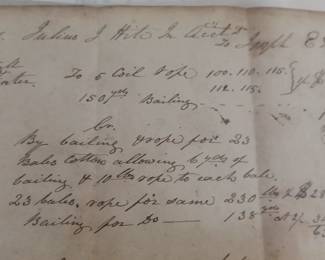 Julius J Hile In Acct
To Joseph E
To 5 Coil rope 100. 110. 115.
112. 115.
150 yds Bailing
Cr.
By bailing & rope for 23
Bales Cotton allowing 6 yds of
bailing & 10 lbs rope to each bale.
23 bales, rope for same 230 lbs
Bailing for Do — 138 yds